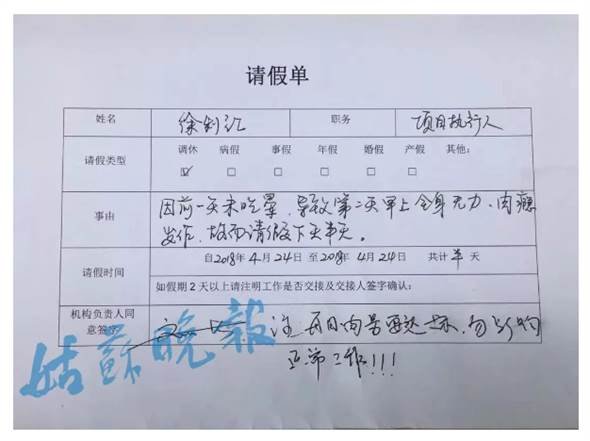 请假单
姓名 徐钊江 职务 项目执行人
请假类型 调休 病假 事假 年假 婚假 产假 其他：
☑ □ □ □ □ □
事由 因前一天未吃荤，导致第二天早上全身无力、肉瘾
发作，故而请假下午半天。
请假时间 自2018年4月24日 至2018年4月24日 共计半天
如假期2天以上请注明工作是否交接及交接人签字确认：
机构负责人同
意签字 注 每日肉量要达标，勿影响
正常工作!!!
姑蘇晚報